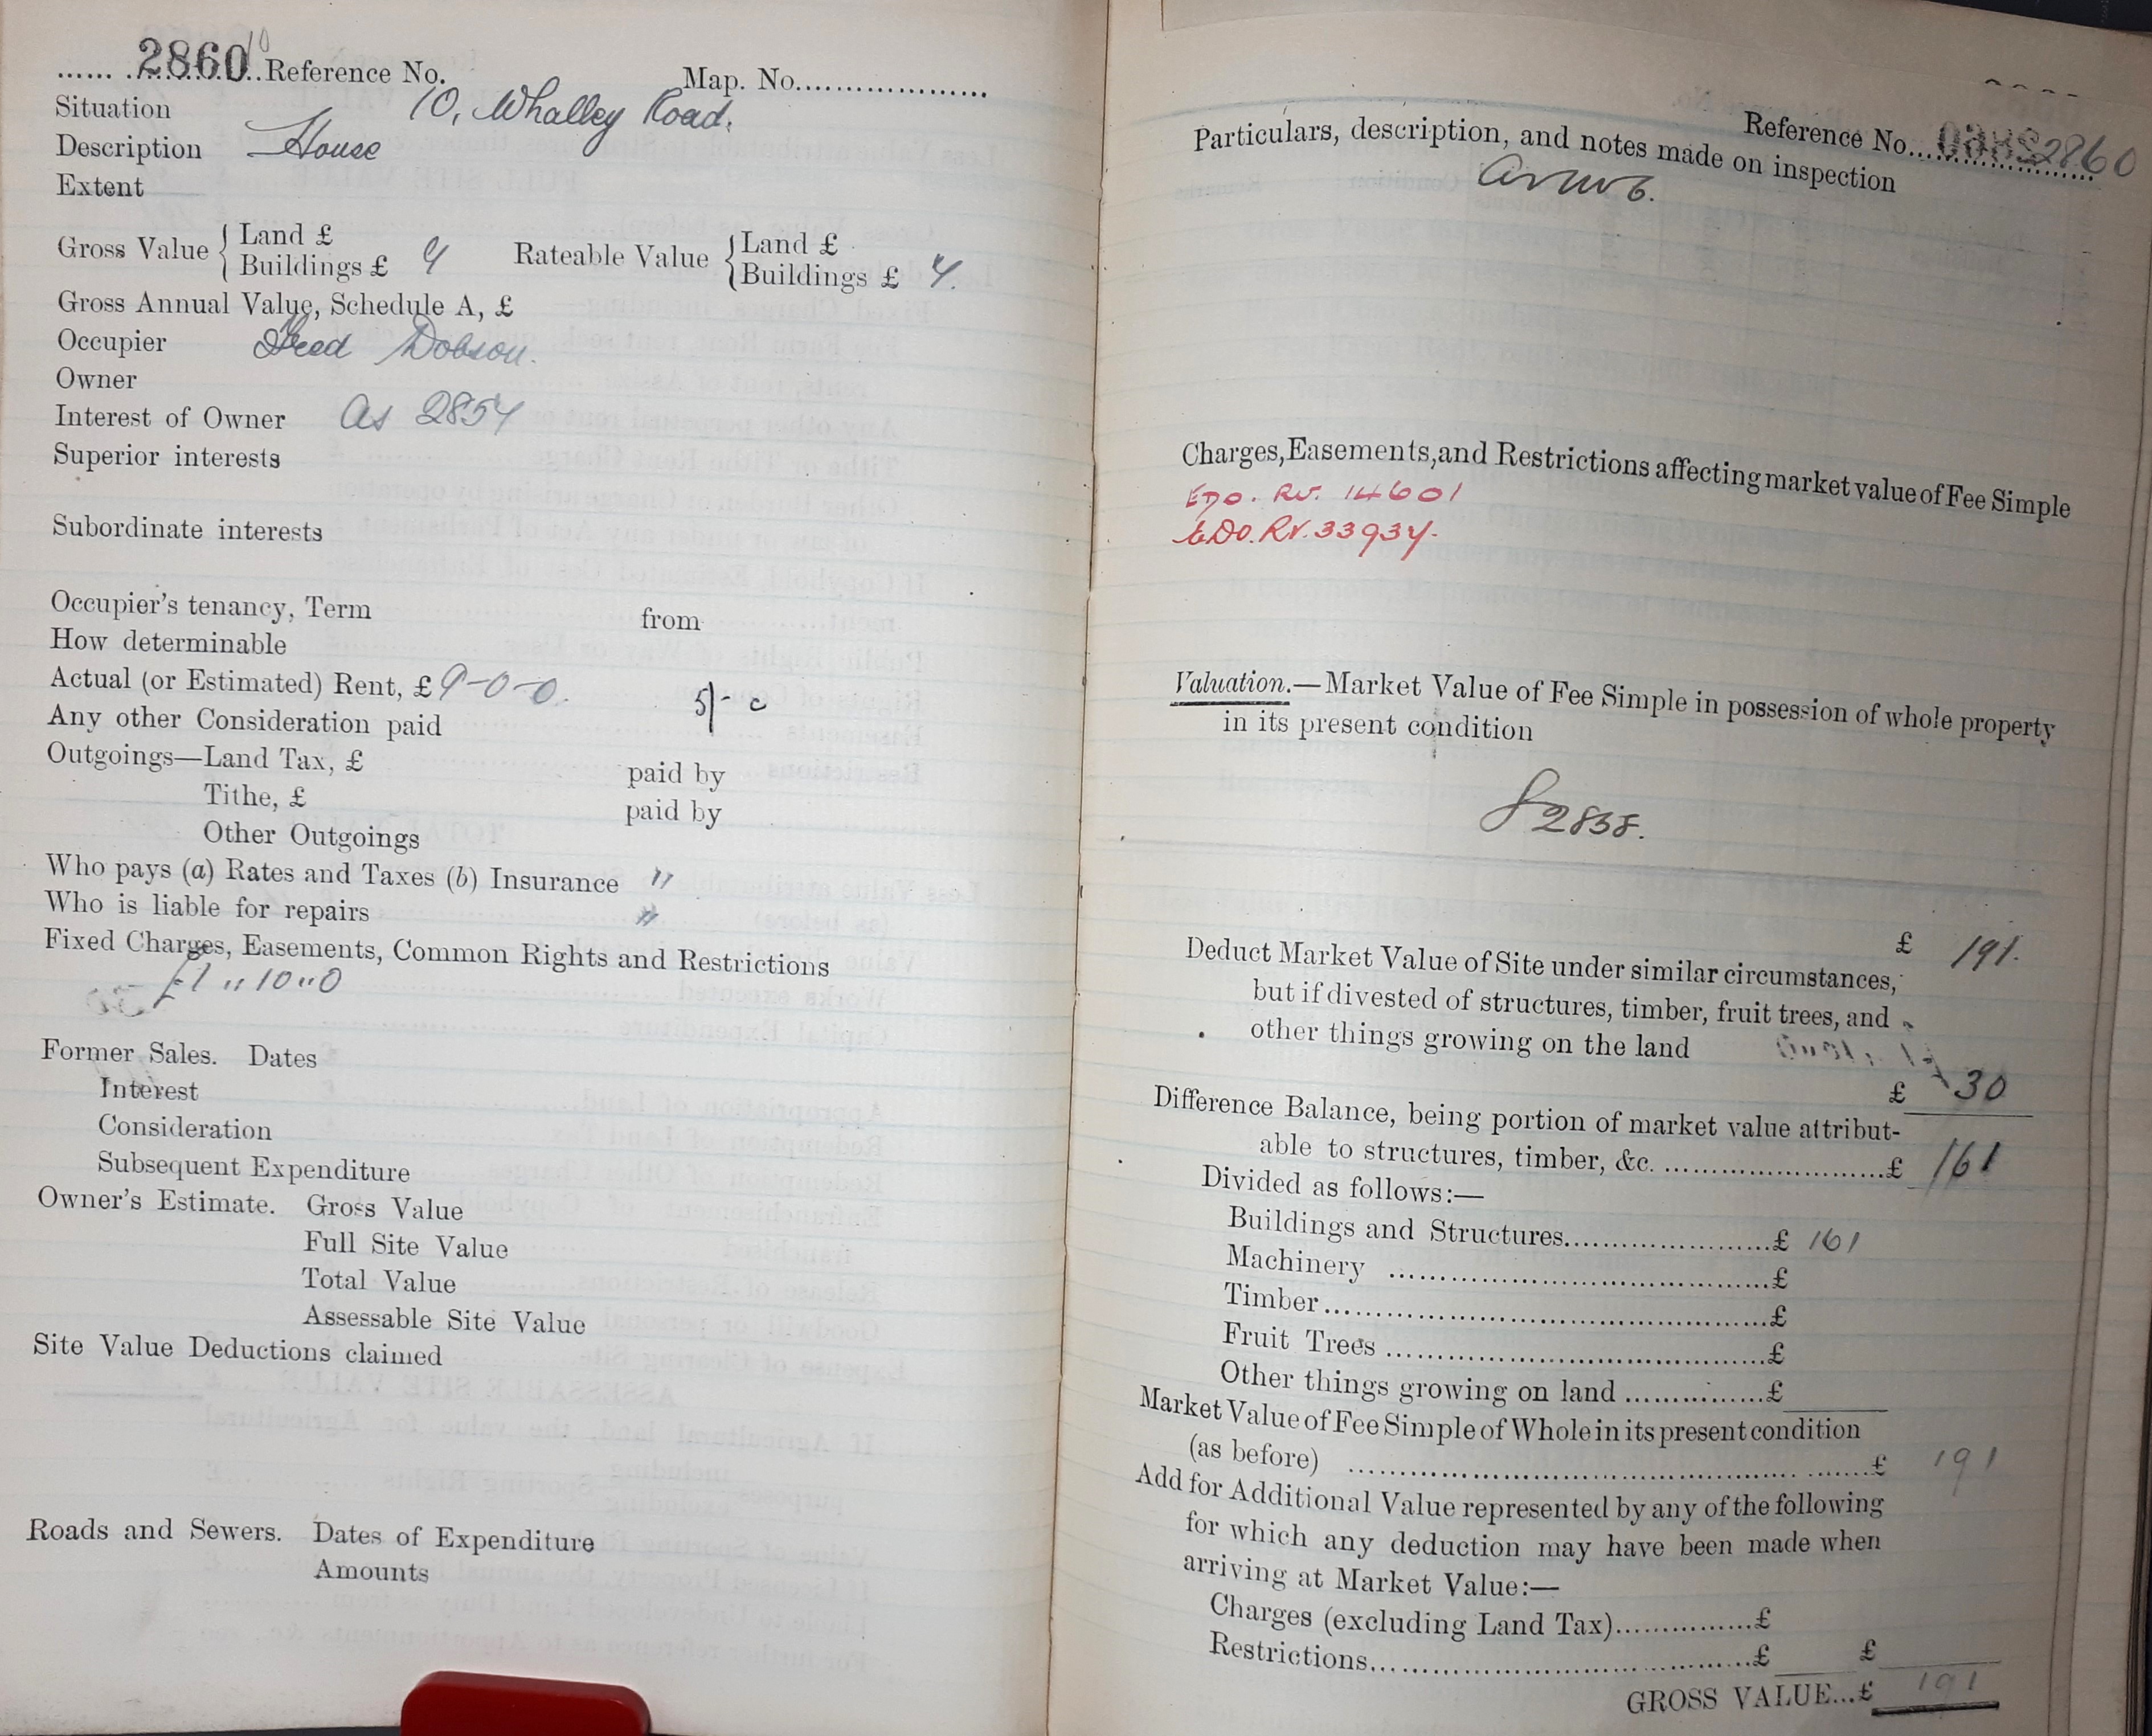 2860 10 Reference No. Map. No.
Situation 10, Whalley Road.
Description House
Extent
Gross Value { Land £
Buildings £ 9
Rateable Value { Land £
Buildings £ 7.
Gross Annual Value, Schedule A, £
Occupier Fred Dobson.
Owner
Interest of Owner As 2857
Superior interests
Subordinate interests
Occupier's tenancy, Term from
How determinable
Actual (or Estimated) Rent, £ 9-0-0. 5/- c
Any other Consideration paid
Outgoings—Land Tax, £ paid by
Tithe, £ paid by
Other Outgoings
Who pays (a) Rates and Taxes (b) Insurance "
Who is liable for repairs "
Fixed Charges, Easements, Common Rights and Restrictions
£1 " 10 " 0
Former Sales. Dates
Interest
Consideration
Subsequent Expenditure
Owner's Estimate. Gross Value
Full Site Value
Total Value
Assessable Site Value
Site Value Deductions claimed
Roads and Sewers. Dates of Expenditure
Amounts
Reference No. 2860
Particulars, description, and notes made on inspection
Charges, Easements, and Restrictions affecting market value of Fee Simple
EDO. RV. 14601
EDO. RV. 33937.
Valuation.—Market Value of Fee Simple in possession of whole property
in its present condition
£ 191.
Deduct Market Value of Site under similar circumstances,
but if divested of structures, timber, fruit trees, and
other things growing on the land
£ 30
Difference Balance, being portion of market value attribut-
able to structures, timber, &c. £ 161
Divided as follows:—
Buildings and Structures £ 161
Machinery £
Timber £
Fruit Trees £
Other things growing on land £
Market Value of Fee Simple of Whole in its present condition
(as before) £ 191
Add for Additional Value represented by any of the following
for which any deduction may have been made when
arriving at Market Value:—
Charges (excluding Land Tax) £
Restrictions £ £
GROSS VALUE... £ 191